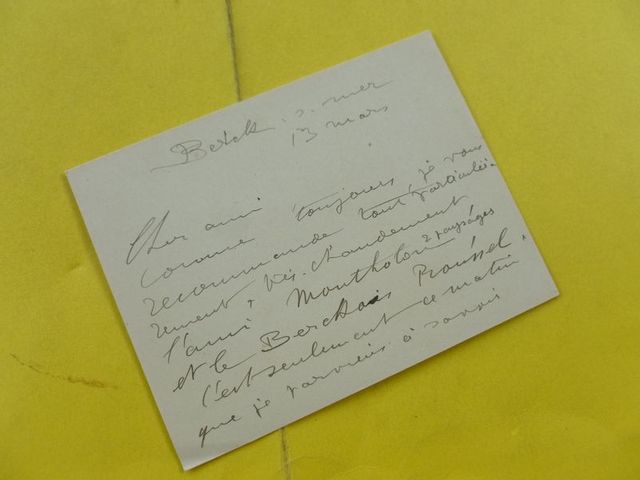 Berck s. mer
13 mars
Cher ami
comme toujours je vous
recommande tout particuliè-
rement, très chaudement
l'ami Montholon 2 paysages
et le Berckois Roussel.
C'est seulement ce matin
que je parviens à savoir